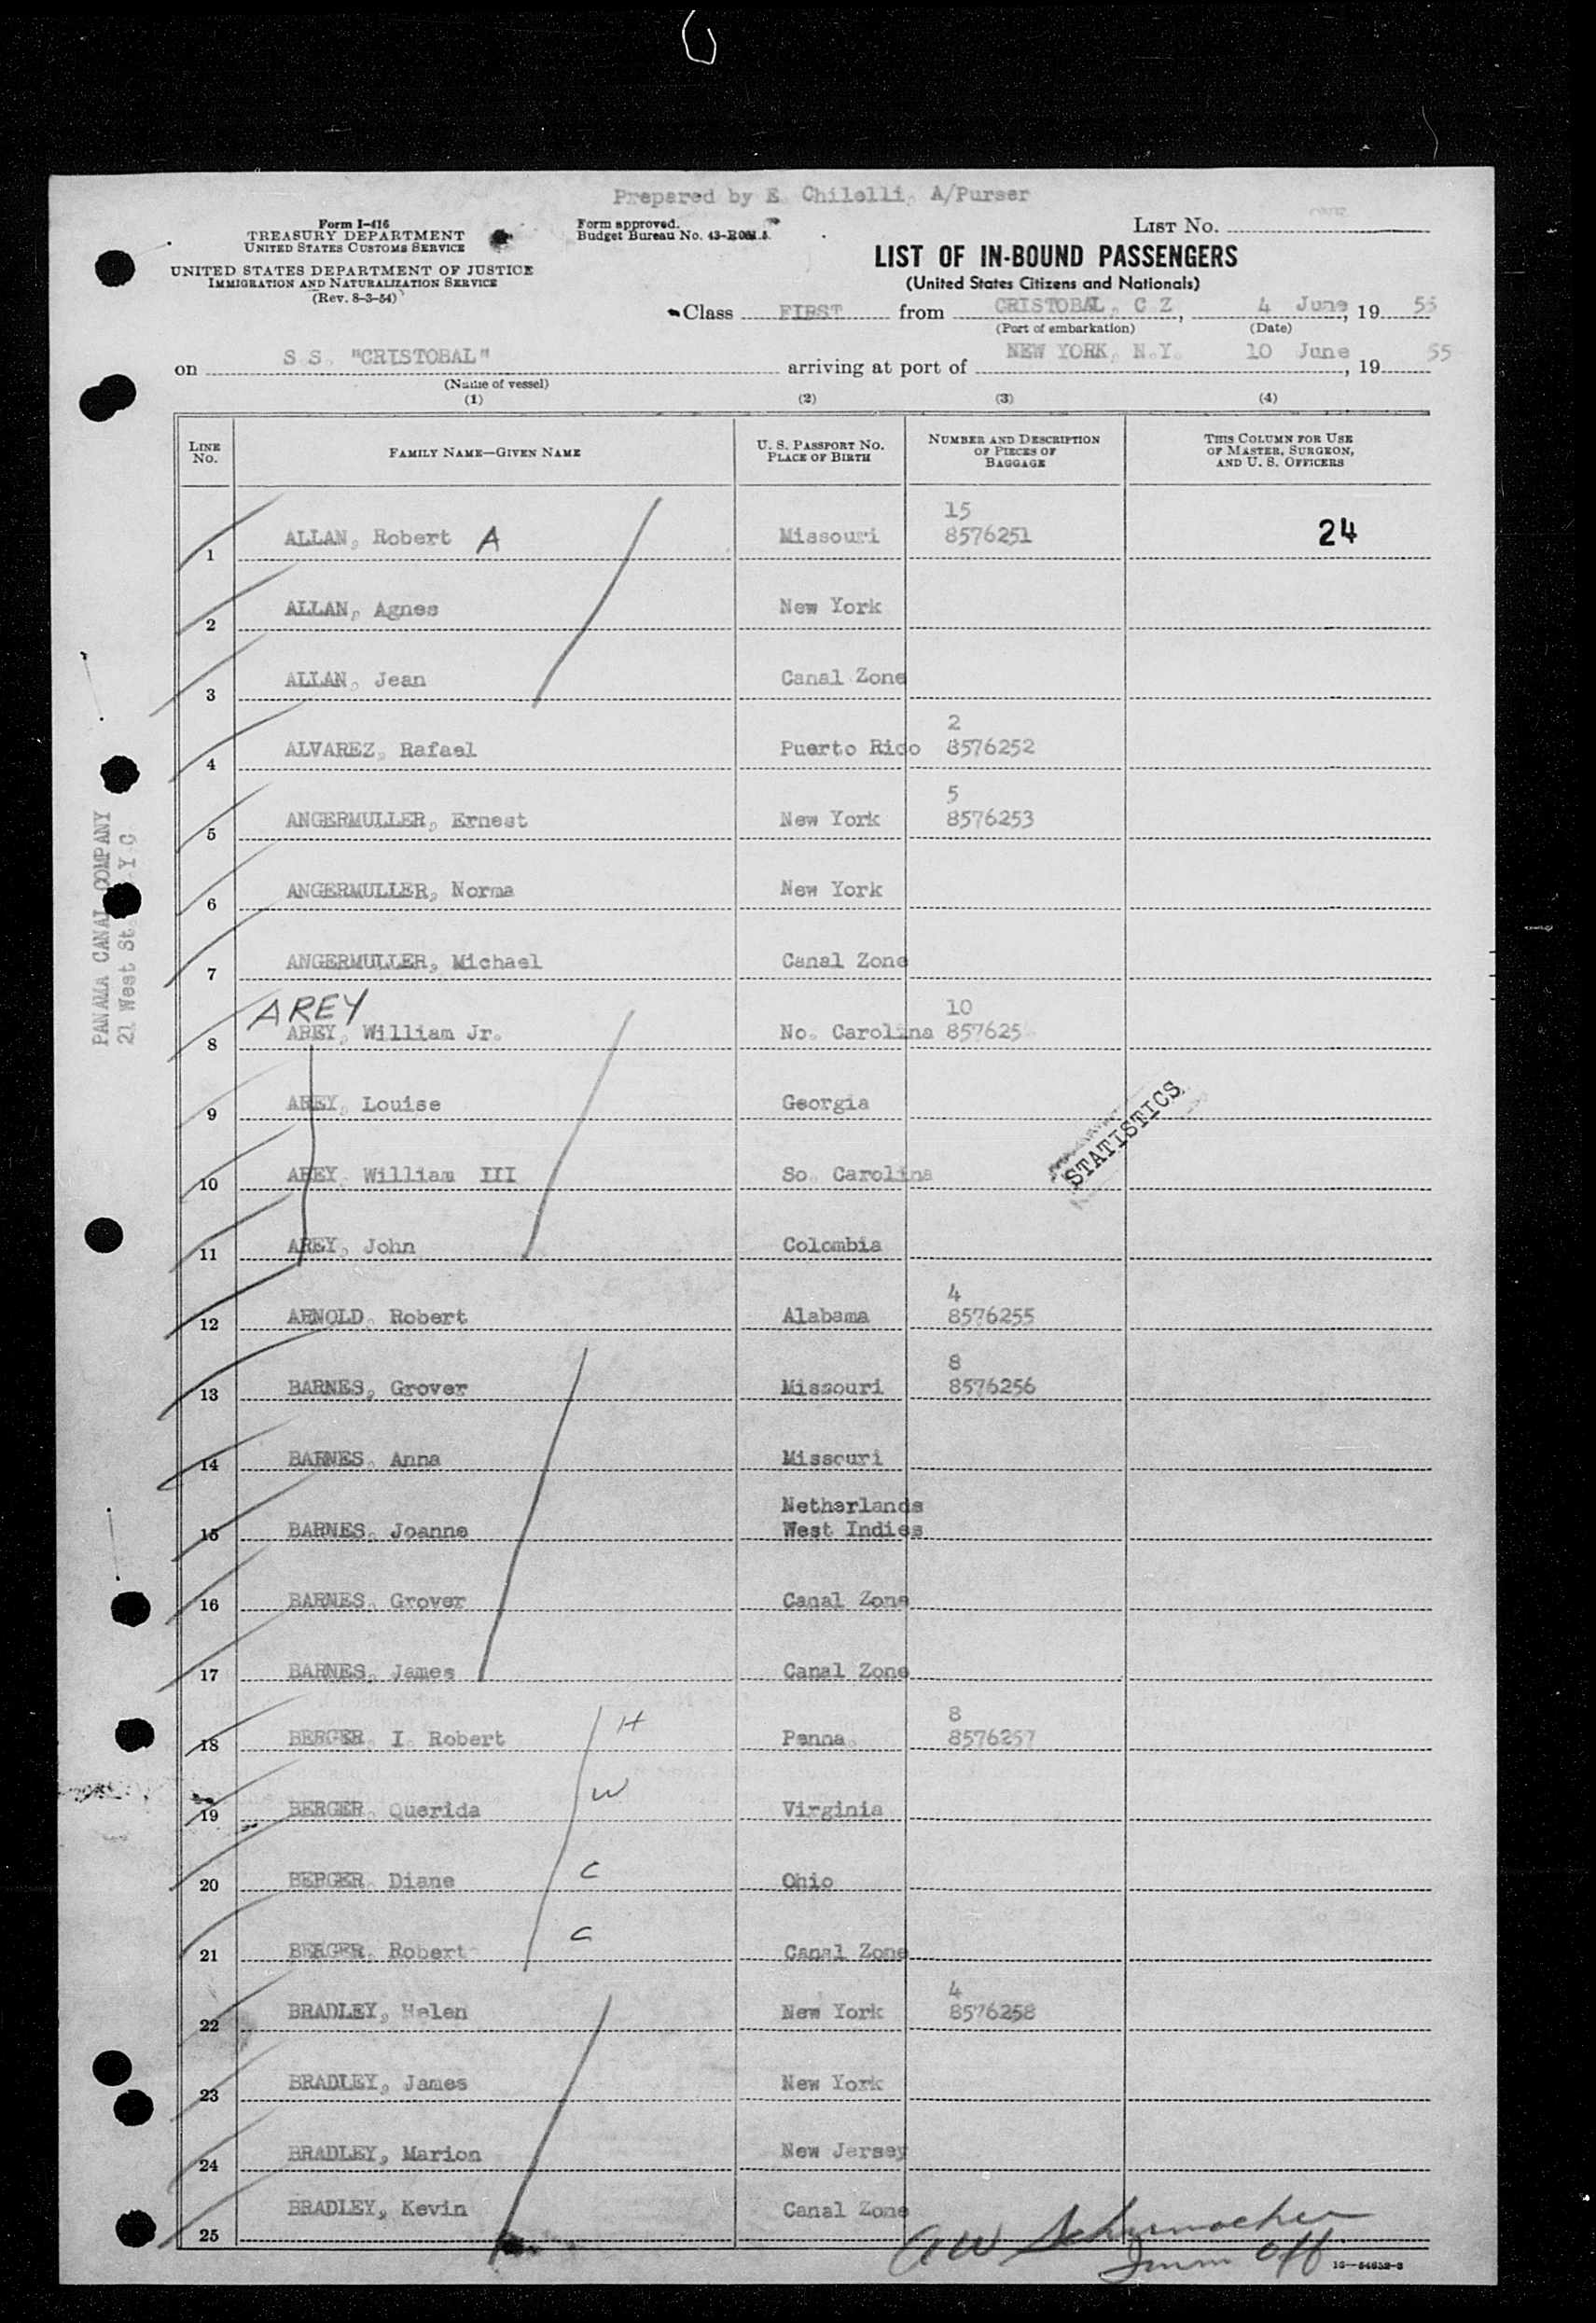 Prepared by E. Chilelli, A/Purser
Form I-416
TREASURY DEPARTMENT
UNITED STATES CUSTOMS SERVICE
UNITED STATES DEPARTMENT OF JUSTICE
IMMIGRATION AND NATURALIZATION SERVICE
(Rev. 8-3-54)
Form approved.
Budget Bureau No. 43-R081.5.
LIST NO.
LIST OF IN-BOUND PASSENGERS
(United States Citizens and Nationals)
Class FIRST from CRISTOBAL, C Z, 4 June, 19 55
(Port of embarkation) (Date)
on S S. "CRISTOBAL" arriving at port of NEW YORK, N.Y. 10 June, 19 55
(Name of vessel)
(1) (2) (3) (4)
LINE NO. FAMILY NAME—GIVEN NAME U. S. PASSPORT NO. PLACE OF BIRTH NUMBER AND DESCRIPTION OF PIECES OF BAGGAGE THIS COLUMN FOR USE OF MASTER, SURGEON, AND U. S. OFFICERS
15
1 ALLAN, Robert A Missouri 8576251 24
2 ALLAN, Agnes New York
3 ALLAN, Jean Canal Zone
2
4 ALVAREZ, Rafael Puerto Rico 8576252
5
5 ANGERMULLER, Ernest New York 8576253
6 ANGERMULLER, Norma New York
7 ANGERMULLER, Michael Canal Zone
AREY 10
8 AREY, William Jr. No. Carolina 857625
9 AREY, Louise Georgia
STATISTICS
10 AREY, William III So. Carolina
11 AREY, John Colombia
4
12 ARNOLD, Robert Alabama 8576255
8
13 BARNES, Grover Missouri 8576256
14 BARNES, Anna Missouri
Netherlands
15 BARNES, Joanne West Indies
16 BARNES, Grover Canal Zone
17 BARNES, James Canal Zone
H 8
18 BERGER, I. Robert Penna. 8576257
W
19 BERGER, Querida Virginia
C
20 BERGER, Diane Ohio
C
21 BERGER, Robert Canal Zone
4
22 BRADLEY, Helen New York 8576258
23 BRADLEY, James New York
24 BRADLEY, Marion New Jersey
25 BRADLEY, Kevin Canal Zone
AW Schumacher
Imm Off
PANAMA CANAL COMPANY
21 West St. Y.C.